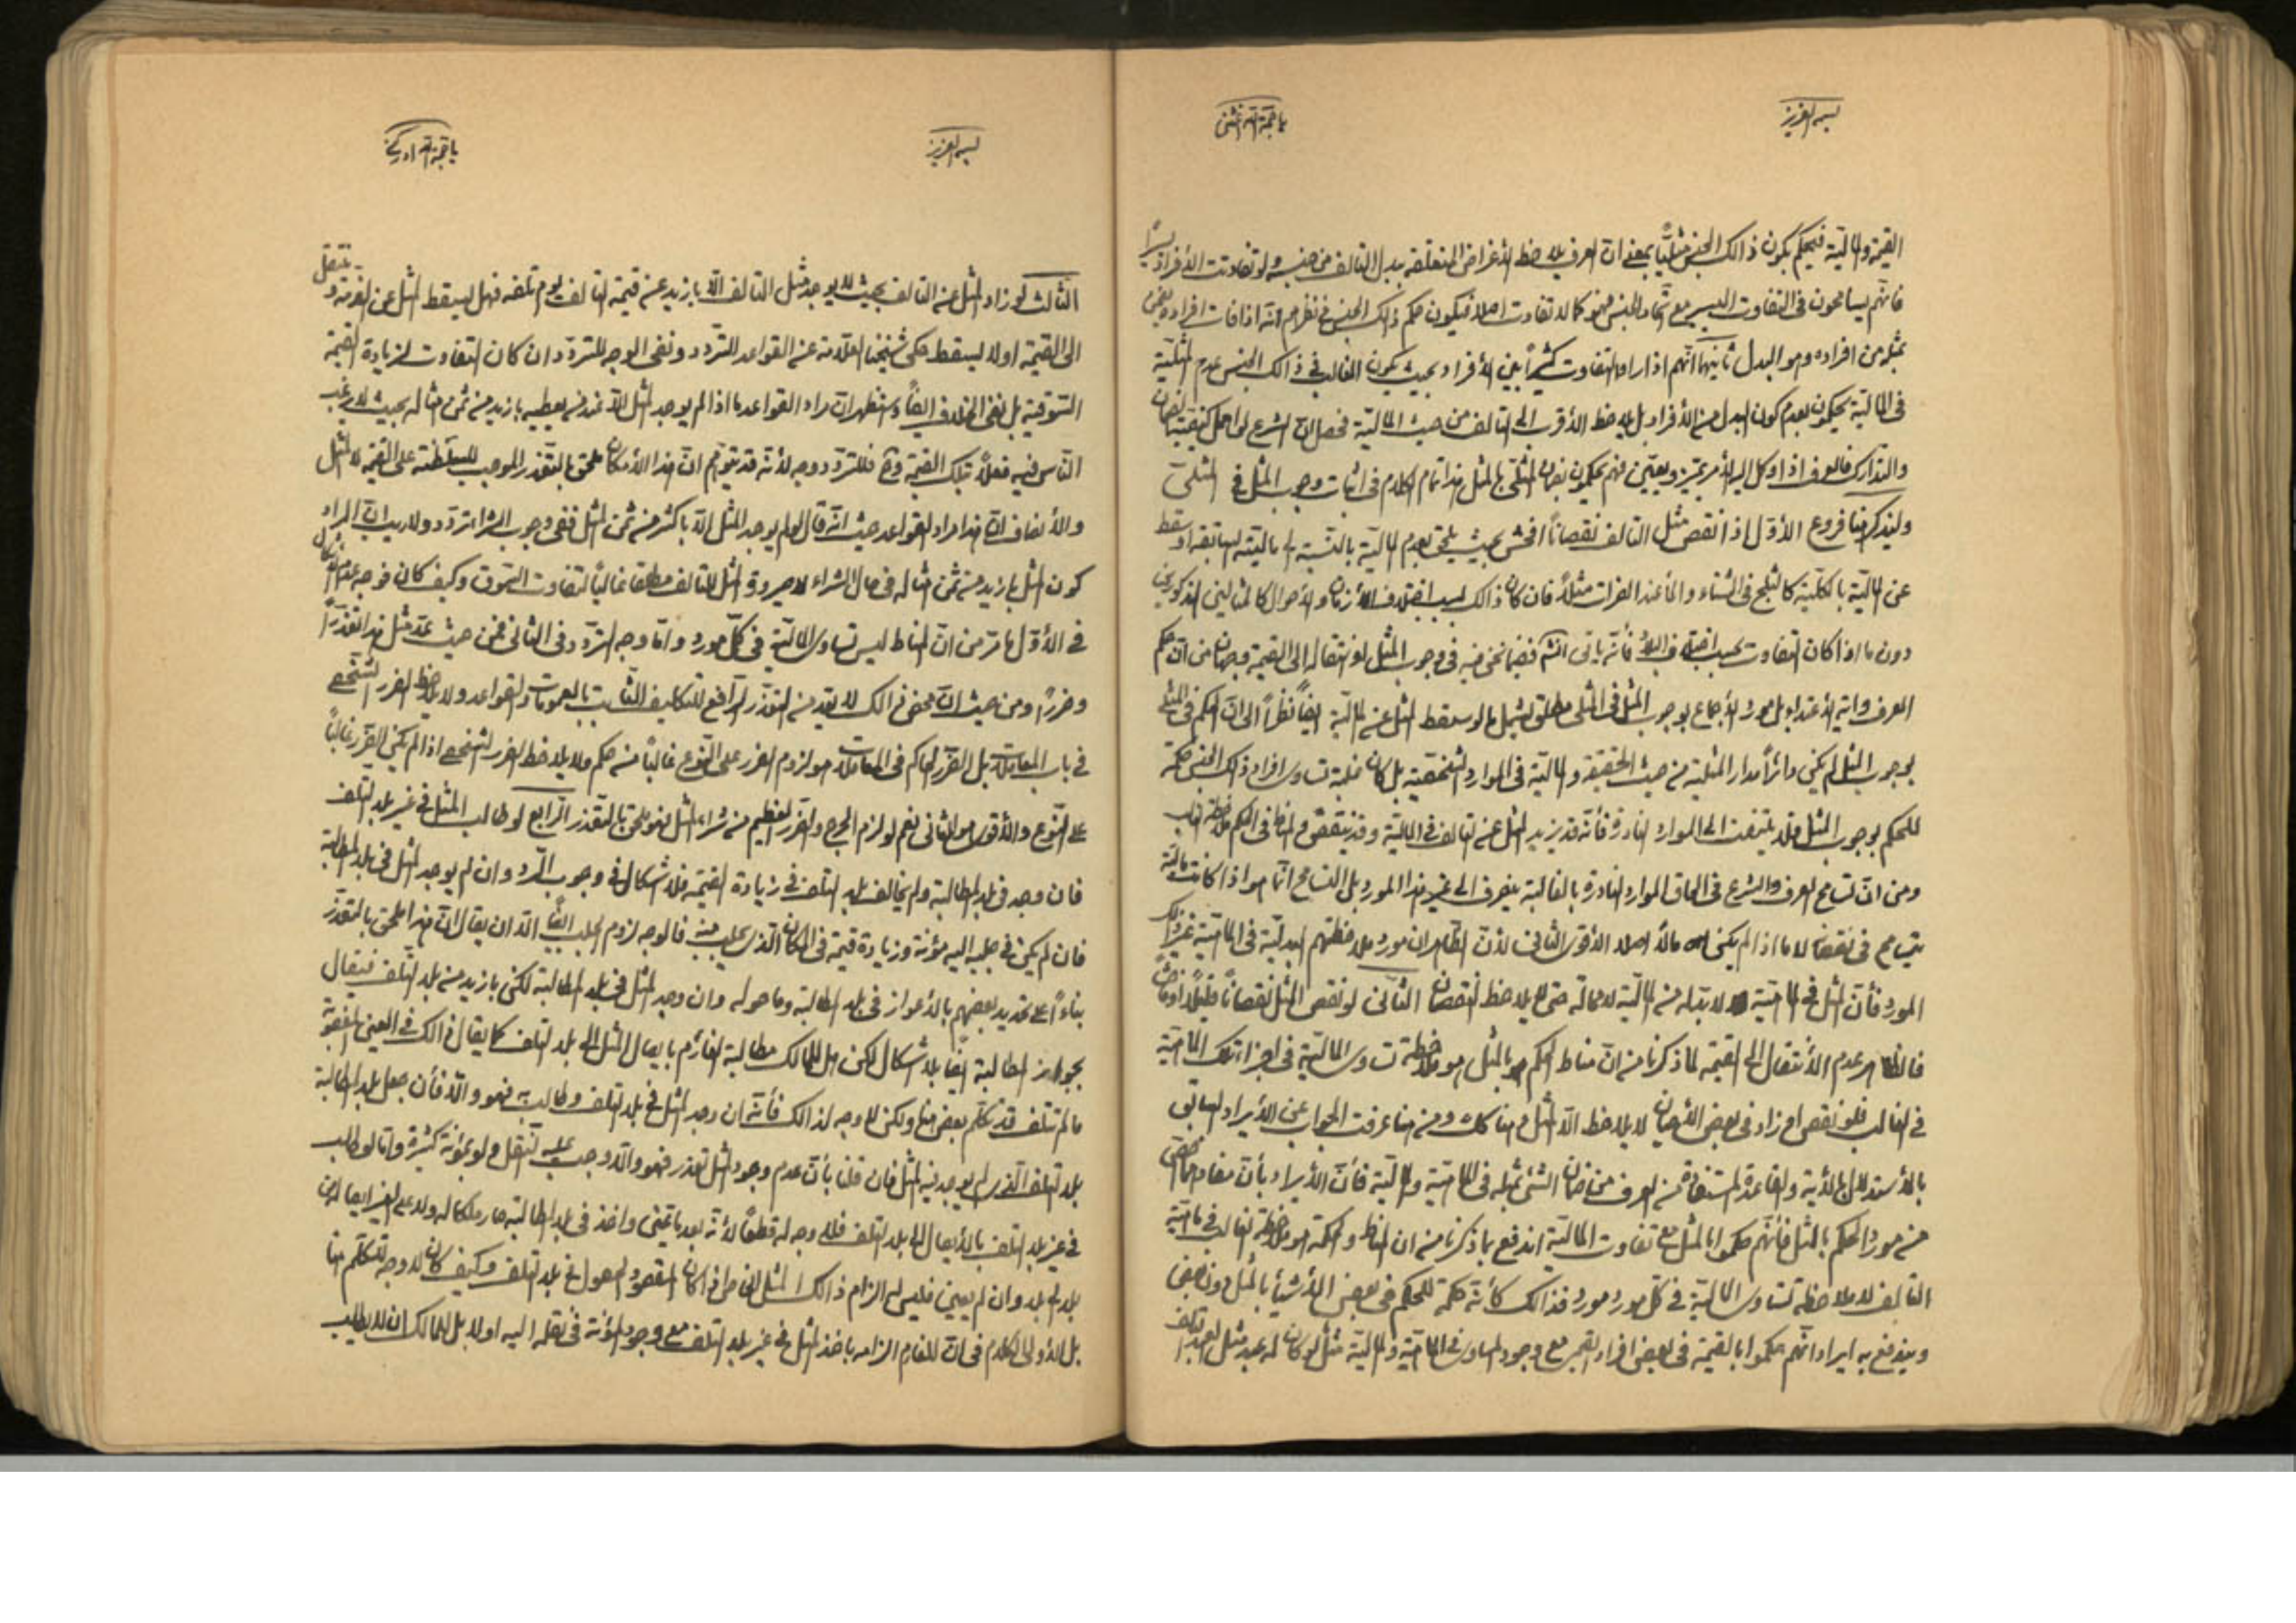 بسمه العزيز
يا حجة الله اغثنى
القيمة والمالية فيحكم بكون ذالك الجنس مثليًّا بمعنى ان العرف يلاحظ الأغراض المتعلقة ببدل التالف من جنسه ولو تفاوتت الأفراد يسيرًا
فانهم يسامحون فى التفاوت اليسير مع اتحاد الجنس فهو كما لا تفاوت اصلا فيكون حكم ذالك الجنس فى نظرهم انه اذا فات افراده يضمن
بمثله من افراده وهو البدل ثانيهما انهم اذا راوا التفاوت كثيراً بين الأفراد بحيث يكون الغالب فى ذالك الجنس عدم المثلية
فى المالية يحكمون بعدم كون البدل من الأفراد بل يلاحظ الأقرب الى التالف من حيث المالية فحصل ان الشرع لو اهمل كيفية الضمان
والتدارك فالعرف اذا وكل اليه الأمر يميز ويعين فهم يحكمون بضمان المثلى بالمثل هذا تمام الكلام فى اثبات وجوب المثل فى المثلى
ولنذكر هنا فروع الأول اذا نقص مثل التالف نقصاناً افحش بحيث يلحق بعدم المالية بالنسبة الى ماليته السابقة او سقط
عن المالية بالكلية كالثلج فى الشتاء والماء عند الفرات مثلاً فان كان ذالك بسبب اختلاف الأزمان والأحوال كالمثالين المذكورين
دون ما اذا كان التفاوت بحسب اختلاف البلاد فأنه يأتى انشم ففيما نحن فيه فى وجوب المثل او انتقاله الى القيمة وجهان من ان حكم
العرف وآية الأعتداء بل مورد الأجماع بوجوب المثل فى المثلى مطلق يشمل ما لو سقط المثل عن المالية ايضاً نظراً الى ان الحكم فى المثلى
بوجوب المثل لم يكن دائراً مدار المثلية من حيث الحقيقة والمالية فى الموارد الشخصية بل كان غلبة تساوى افراد ذالك الجنس حكمة
للحكم بوجوب المثل فلا يلتفت الى الموارد النادرة فأنه قد يزيد المثل عن التالف فى المالية وقد ينقص والمناط فى الحكم ملاحظة الغالب
ومن ان تسامح العرف والشرع فى الحاق الموارد النادرة بالغالبة ينصرف الى غير هذا المورد بل التسامح انما هو اذا كانت مالية
يتسامح فى نقصانها لا ما اذا لم يكن مالاً اصلا الأقوى الثانى لأن الظاهر ان مورد ملاحظتهم البدلية فى الماهية غير ذالك
المورد فأن المثل فى الماهية لا بد له من المالية لا محالة حتى يلاحظ النقصان الثانى لو نقص المثل نقصاناً قليلاً او فاحشاً
فالظاهر عدم الأنتقال الى القيمة لما ذكرنا من ان مناط الحكم بالمثل هو ملاحظة تساوى المالية فى افراد تلك الماهية
فى الغالب فلو نقص او زاد فى بعض الأحيان لا يلاحظ الا المثل وهنا كذلك ومن هنا عرفت الجواب عن الأيراد السابق
بالأستدلال بالأية والقاعدة المستفادة من العرف من ضمان الشئ بمثله فى الماهية والمالية فأن الأيراد بأن مفادهما اخص
من مورد الحكم بالمثل فأنهم حكموا بالمثل مع تفاوت المالية اندفع بما ذكرنا من ان المناط والحكمة هو ملاحظة الغالب فى ماهية
التالف لا ملاحظة تساوى المالية فى كل مورد مورد فذالك كأنه حكمة للحكم فى بعض الأشياء بالمثل دون بعض
ويندفع به ايراد انهم حكموا بالقيمة فى بعض افراد القيمى مع وجود المساوى فى الماهية والمالية مثل لو كان له عبد مثل العبد التالف
بسمه العزيز
يا حجة الله ادركنى
الثالث لو زاد المثل عن التالف بحيث لا يوجد مثل التالف الا بازيد عن قيمة التالف يوم تلفه فهل يسقط المثل عن الغرامة وينتقل
الى القيمة او لا يسقط حكى شيخنا العلامة عن القواعد التردد ونفى الاوجه للتردد ان كان التفاوت لزيادة القيمة
السوقية بل نفى الخلاف ايضاً واستظهر ان مراد القواعد ما اذا لم يوجد المثل الا عند من يعطيه بازيد من ثمن مثاله بحيث لا يرغب
الناس فيه فعلاً بتلك القيمة وح فللتردد وجه لأنه قد يتوهم ان هذا الأمكان ملحق بالتعذر الموجب للسلطنة على القيمة لا المثل
والأنصاف ان هذا مراد القواعد حيث انه قال لو لم يوجد المثل الا باكثر من ثمن المثل ففى وجوب الشراء تردد ولا ريب ان المراد
كون المثل بازيد من ثمن مثاله فى حال الشراء لا صيرورة المثل للتالف مطلقا غالياً لتفاوت السوق وكيف كان فوجه عدم الأشكال
فى الأول ما مر من ان المناط ليس تساوى المالية فى كل مورد واما وجه التردد فى الثانى فمن حيث عد مثل هذا تعذراً
وضرراً ومن حيث ان محض ذالك لا يعد من التعذر الرافع للتكليف الثابت بالعمومات والقواعد ولا يلاحظ الضرر الشخصى
فى باب المعاملات بل الضرر الحاكم فى المعاملات هو لزوم الضرر على النوع غالباً من حكم ولا يلاحظ الضرر الشخصى اذا لم يكن الضرر غالباً
على النوع والأقوى هو الثانى نعم لو لزم الحرج والضرر العظيم من شراء المثل فهو ملحق بالتعذر الرابع لو طالب المثل فى غير بلد التلف
فان وجد فى بلد المطالبة ولم يخالف بلد التلف فى زيادة القيمة فلا اشكال فى وجوب الرد وان لم يوجد المثل فى بلد المطالبة
فان لم يكن فى جلبه اليه مؤنة وزيادة قيمة فى المكان الذى يجلب منه فالوجه لزوم الجلب ايضاً الا ان يقال ان هذا ملحق بالتعذر
بناءً على تحديد بعضهم بالأعواز فى بلد المطالبة وما حوله وان وجد المثل فى بلد المطالبة لكن بازيد من بلد التلف فيقال
بجواز المطالبة ايضاً بلا اشكال لكن هل للمالك مطالبة الغارم بايصال المثل الى بلد التلف كما يقال ذالك فى العين المغصوبة
ما لم تتلف قد تكلم بعض هنا ولكن لا وجه لذالك فأنه ان وجد المثل فى بلد التلف وطالب به فهو والا فأن جعل بلد المطالبة
بلد التلف الذى لم يوجد فيه المثل فان قلنا بأن عدم وجود المثل تعذر فهو والا وجب عليه النقل ولو بمؤنة كثيرة واما لو طالب
فى غير بلد التلف بالأيصال الى بلد التلف فلا وجه له قطعاً لأنه بعد ما تمنى واخذ فى بلد المطالبة صار ملكا له ولا على الغير ايصاله من
بلد الى بلد وان لم يعين فليس له الزام ذالك المثل الخاص اذا كان المقصود الوصول فى بلد التلف وكيف كان لا وجه للتكلم هنا
بل الأولى الكلام فى ان للغارم الزامه باخذ المثل فى غير بلد التلف مع وجود المؤنة فى نقله اليه اولا بل للمالك ان لا يطلب